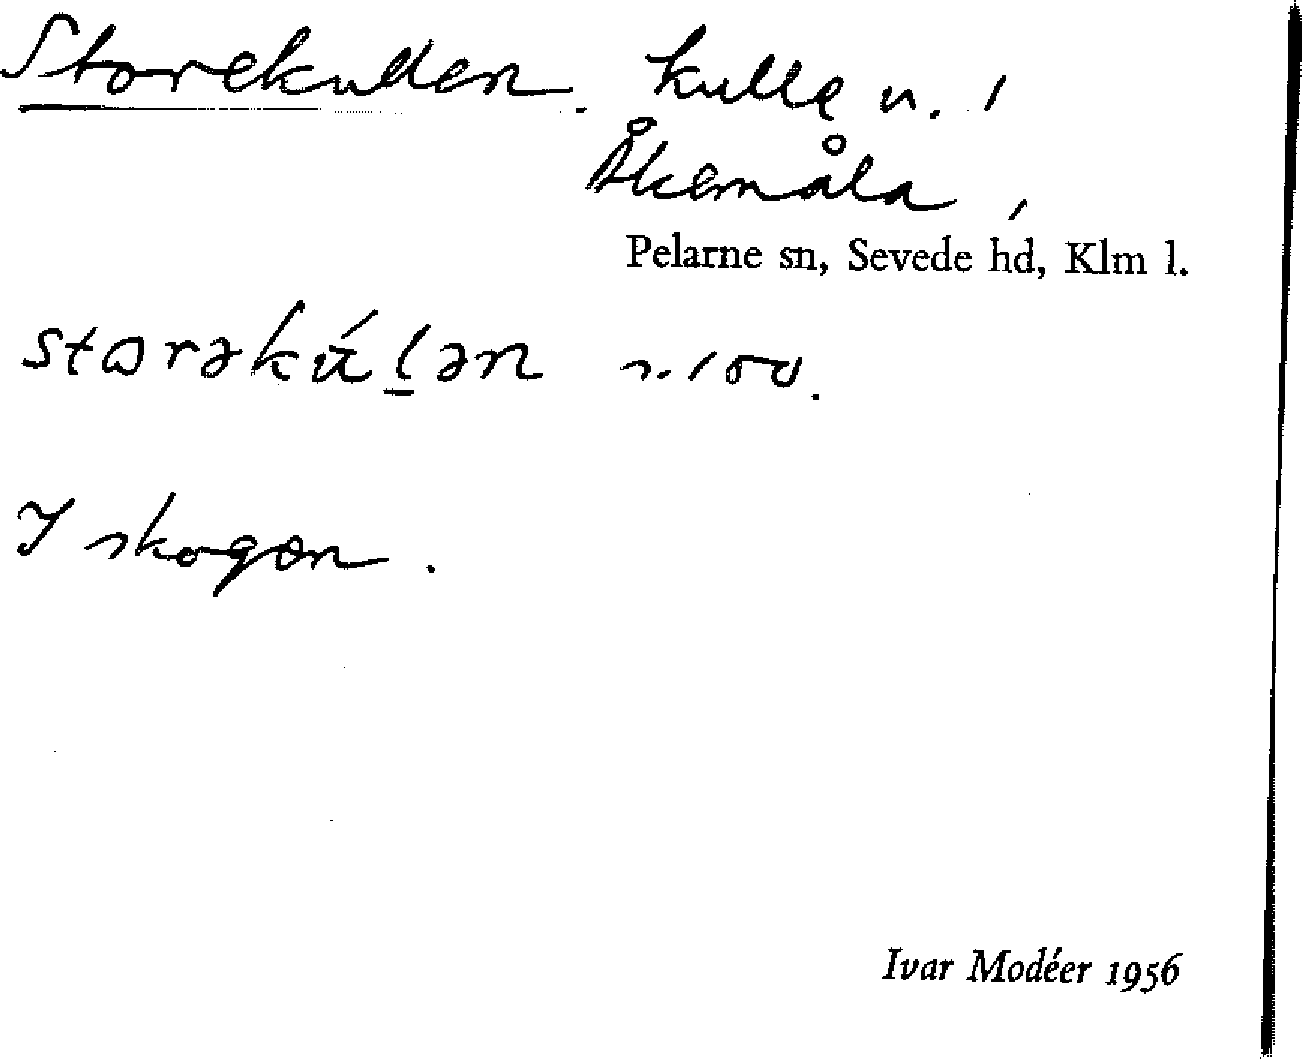 Storekullen. kulle n. 1
Åkemåla,
Pelarne sn, Sevede hd, Klm l.
storəkúl̠ən n. 100.
I skogen.
Ivar Modéer 1956